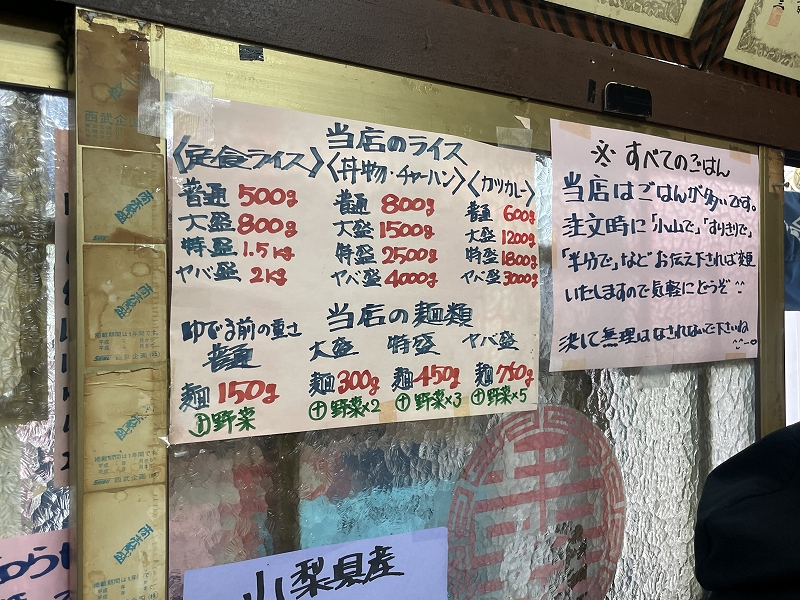 当店のライス
〈定食ライス〉〈丼物・チャーハン〉〈カツカレー〉
普通 500g 普通 800g 普通 600g
大盛 800g 大盛 1500g 大盛 1200g
特盛 1.5kg 特盛 2500g 特盛 1800g
ヤバ盛 2kg ヤバ盛 4000g ヤバ盛 3000g
ゆでる前の重さ 当店の麺類
普通 大盛 特盛 ヤバ盛
麺 150g 麺 300g 麺 450g 麺 750g
野菜 ⊕野菜×2 ⊕野菜×3 ⊕野菜×5
※すべてのごはん
当店はごはんが多いです。
注文時に「小山で」「すりきりで」
「半分で」などお伝え下されば変更
いたしますので気軽にどうぞ
決して無理はなされないで下さいね
山梨県産
西武企